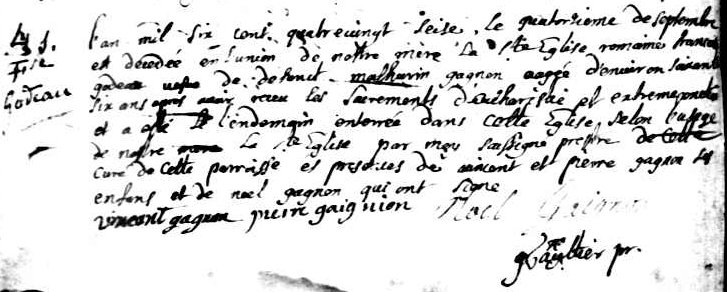 4 S.
Fse
Godeau
l'an mil six cent quatrevingt seise, le quatorsieme de septembre
est decedée en l'union de nostre mère la Ste Eglise romaine francoise
godeau vefve de defunct mathurin gagnon aagée d'environ soixante
six ans apres avoir receu les sacrements d'eucharistie et extremeonction
et a esté le l'endemain enterrée dans cette Eglise, selon l'usage
de nostre mere la Ste Eglise par moy soussigné prestre de cette
Curé de cette parroisse es presences de vincent et pierre gagnon ses
enfans et de noel gagnon qui ont signé
vincent gagnon pierre gaignion Noel Gaignon
gaultier pr.